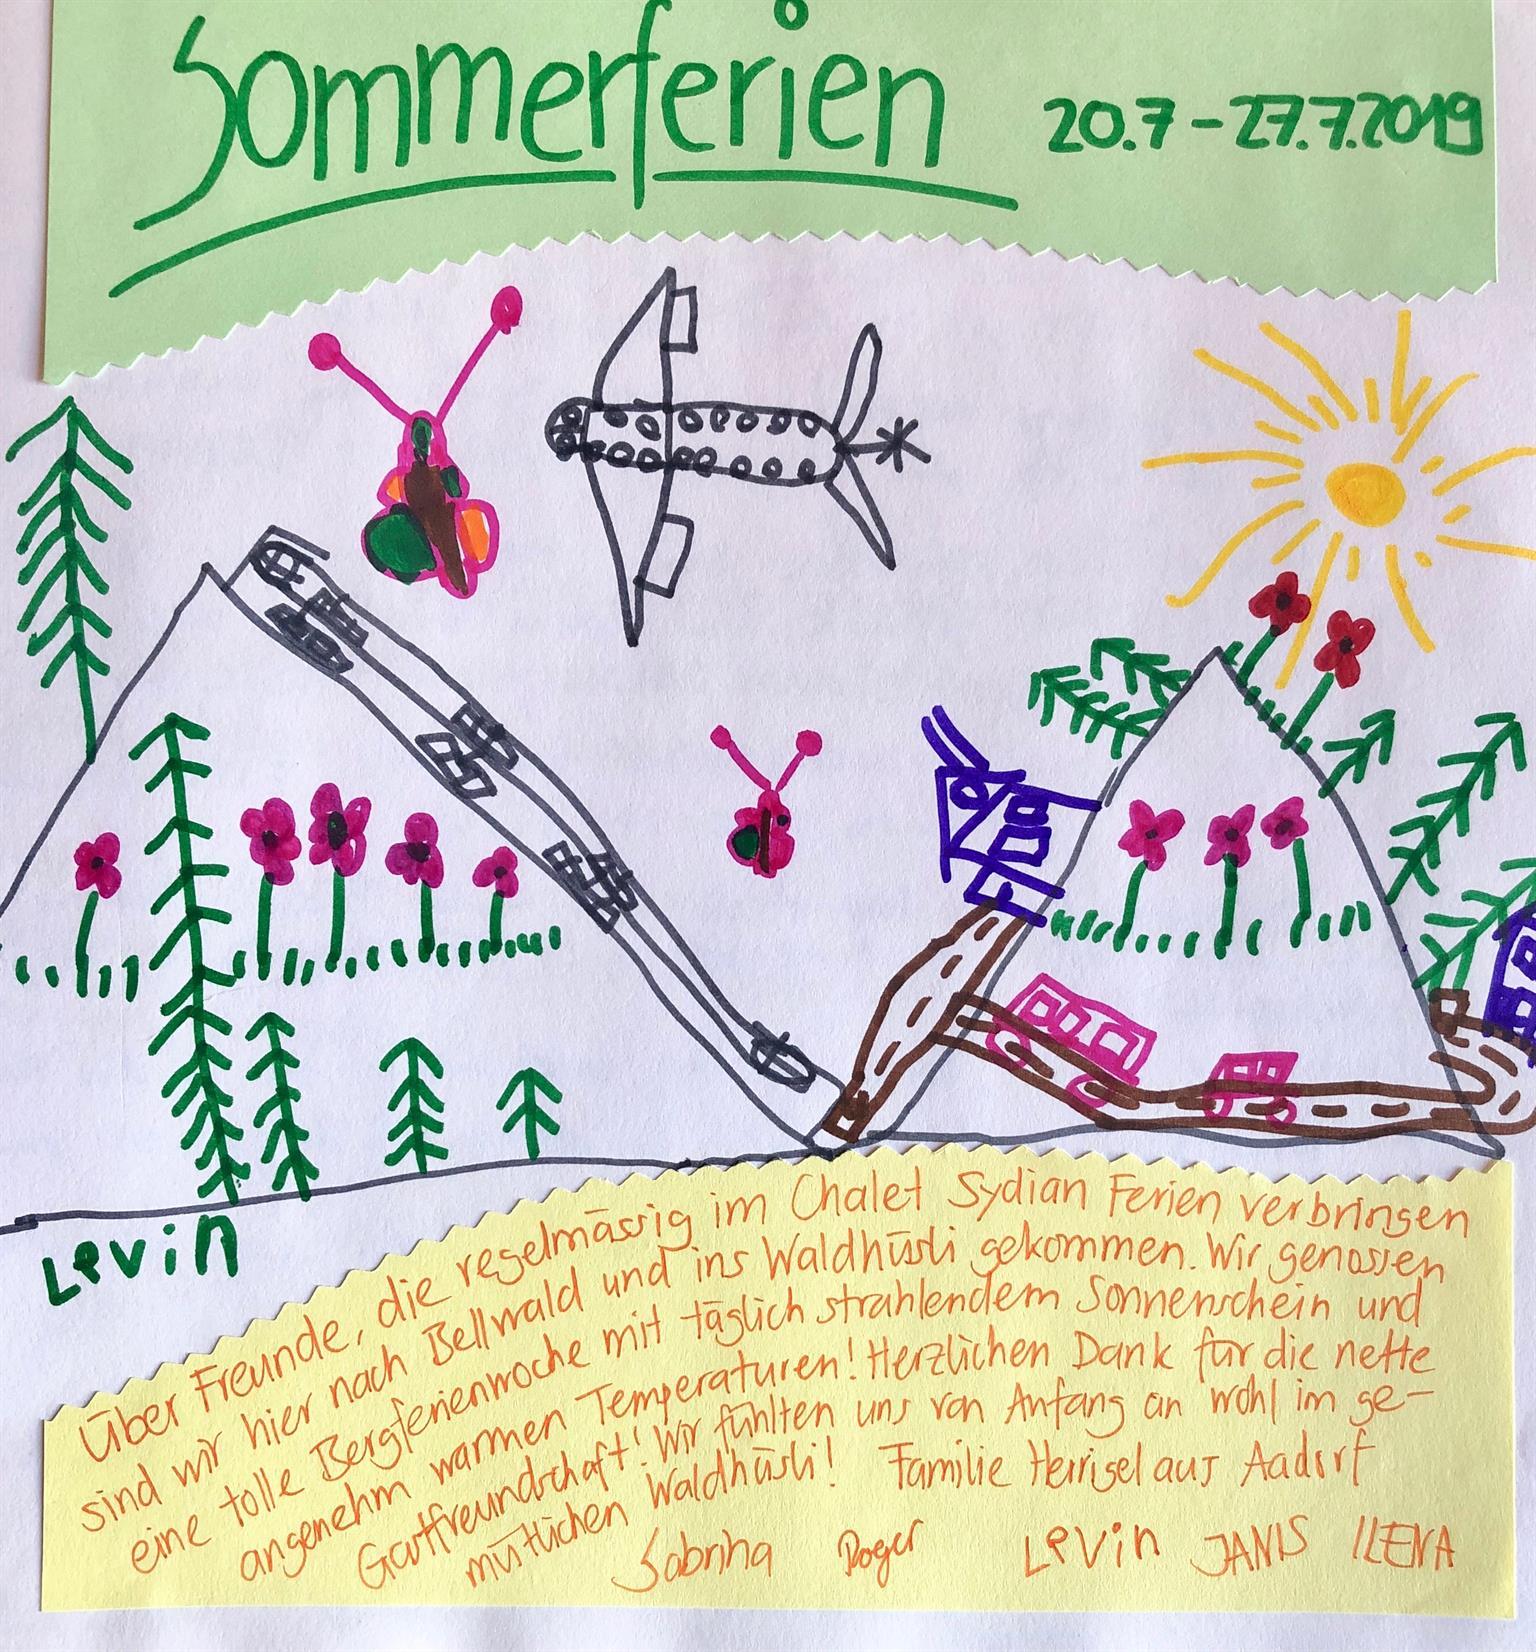 Sommerferien
20.7 - 27.7.2019
Levin
Über Freunde, die regelmässig im Chalet Sydian Ferien verbringen
sind wir hier nach Bellwald und ins Waldhüsli gekommen. Wir genossen
eine tolle Bergferienwoche mit täglich strahlendem Sonnenschein und
angenehm warmen Temperaturen! Herzlichen Dank für die nette
Gastfreundschaft! Wir fühlten uns von Anfang an wohl im ge-
mütlichen Waldhüsli! Familie aus Aadorf
Sabrina Roger Levin JANIS ILENA